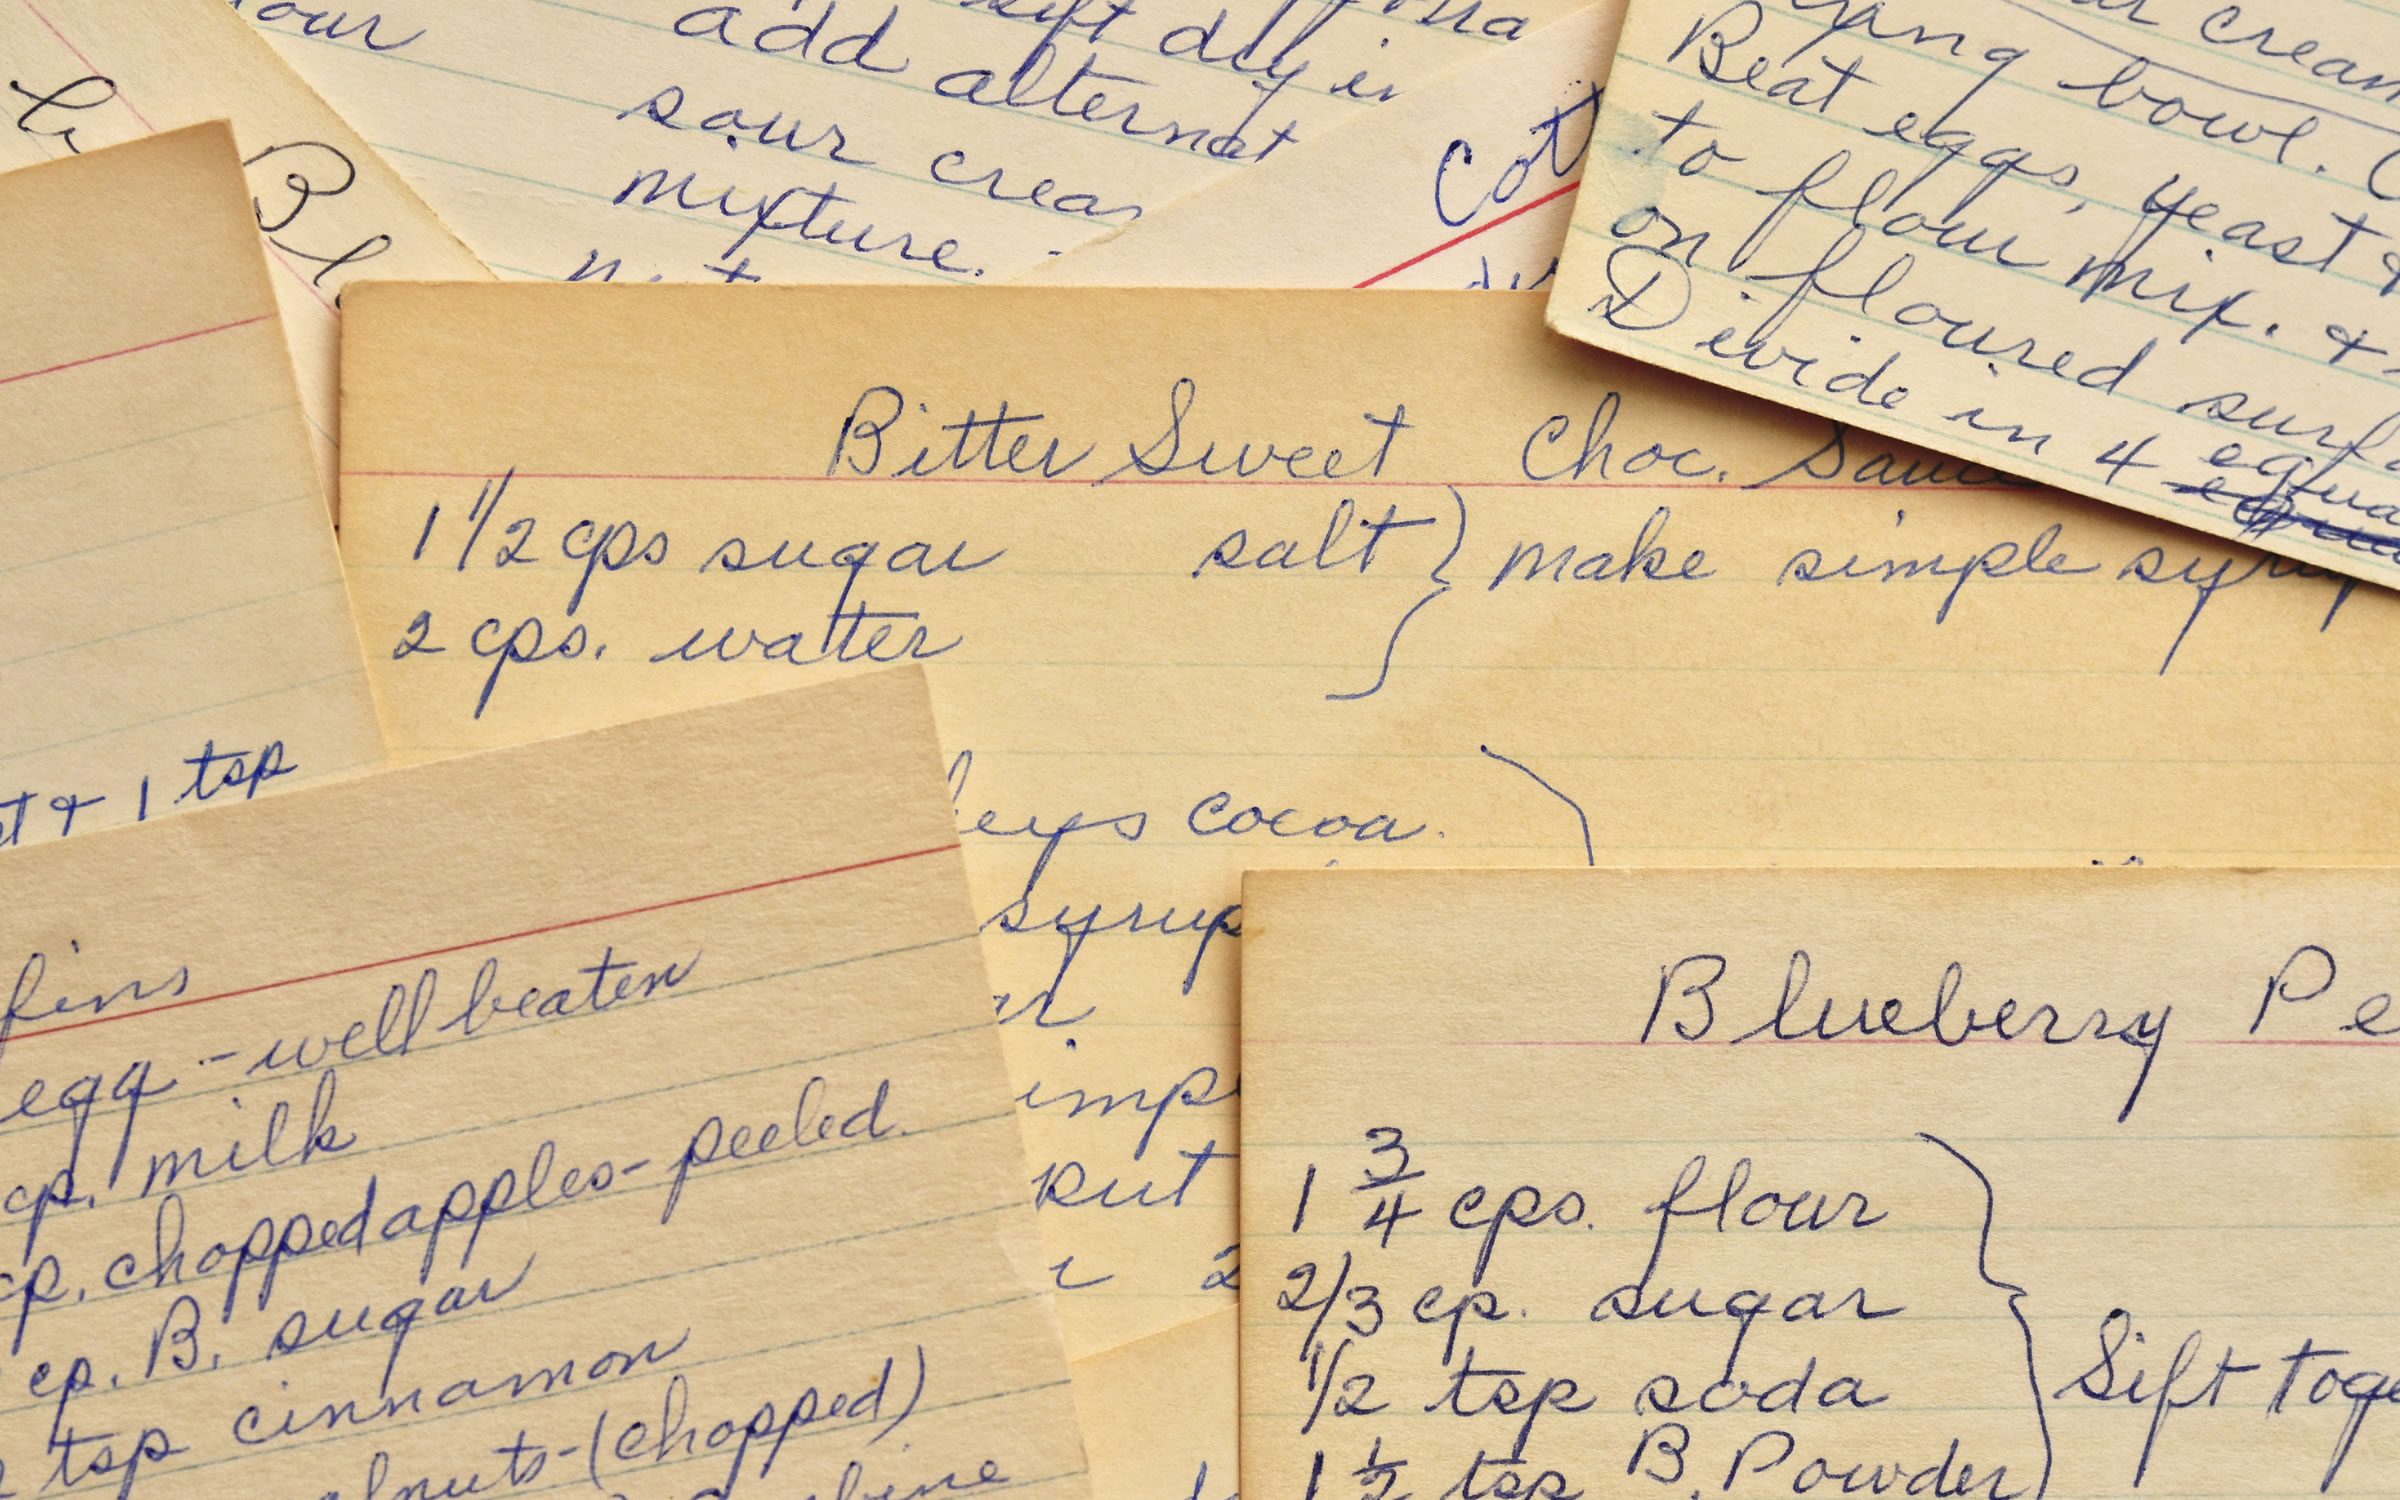 add alternat
sour crea
mixture.
cream
bowl.
Beat eggs, yeast &
to flour mix. &
on floured surfa
Divide in 4 equa
Bl
Cot
Bitter Sweet Choc. Sauce
1 1/2 cps sugar salt } make simple syrup
2 cps. water
leys cocoa.
syrup
imp
put
2
t & 1 tsp
fins
egg - well beaten
cp. milk
cp. chopped apples - peeled.
cp. B. sugar
tsp cinnamon
lnuts - (chopped)
bine
Blueberry Pe
1 3/4 cps. flour
2/3 cp. sugar
1/2 tsp soda
1 1/2 tsp B. Powder
Sift toge